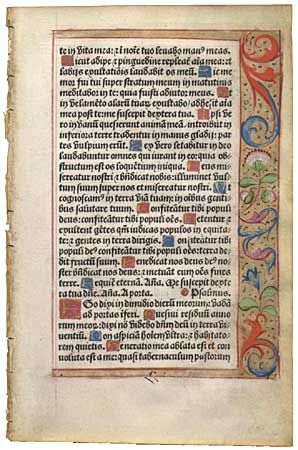 te in vita mea: ⁊ i noĩe tuo levabo man⁹ meas.
Sicut adipe ⁊ pinguedine repleat̃ aĩa mea: et
labijs exultatiõis laudabit os meũ. Sic me
mor fui tui super stratum meum in matutinis
meditabor in te: quia fuisti adiutor meus. Et
in velamẽto alarũ tuaɽ exultabo/ adhesit aĩa
mea post te: me suscepit dextera tua. Ipsi ve
ro in vanũ quesierunt animã meã. introibũt in
inferiora terre tradentur in manus gladij: par
tes vulpium erũt. Rex vero letabitur in deo
laudabuntur omnes qui iurant in eo: quia ob
structum est os loquẽtium iniqua. Deus mise
reatur nostri ⁊ bñdicat nobis: illuminet vul
tum suum super nos et misereatur nostri. Ut
cognoscam⁹ in terra viã tuam: in oĩbus genti
bus salutare tuum. Confiteãtur tibi populi
deus: confiteãtur tibi populi oẽs. Letentur ⁊
exultent gẽtes qm̃ iudicas populos in equita
te: ⁊ gentes in terra dirigis. Confiteãtur tibi
populi de⁹ confiteãtur tibi populi oẽs: terra de
dit fructũ suum. Benedicat nos deus de⁹ no
ster bñdicat nos deus: ⁊ metuãt eum oẽs fines
terre. Requiẽ eternã. Añã. Me suscepit dexte
ra tua dñe. Añã. A porta. Psalmus.
Ego dixi in dimidio dierũ meorum: vadã
ad portas iferi. Quesivi residuũ anno
rum meoɽ: dixi nõ videbo dñm deũ in terra vi
ventiũ. Non aspiciã hoĩem vltra: ⁊ habitato
rem quietis. Generatio mea ablata est: et con
voluta est a me: quasi tabernaculum pastorum